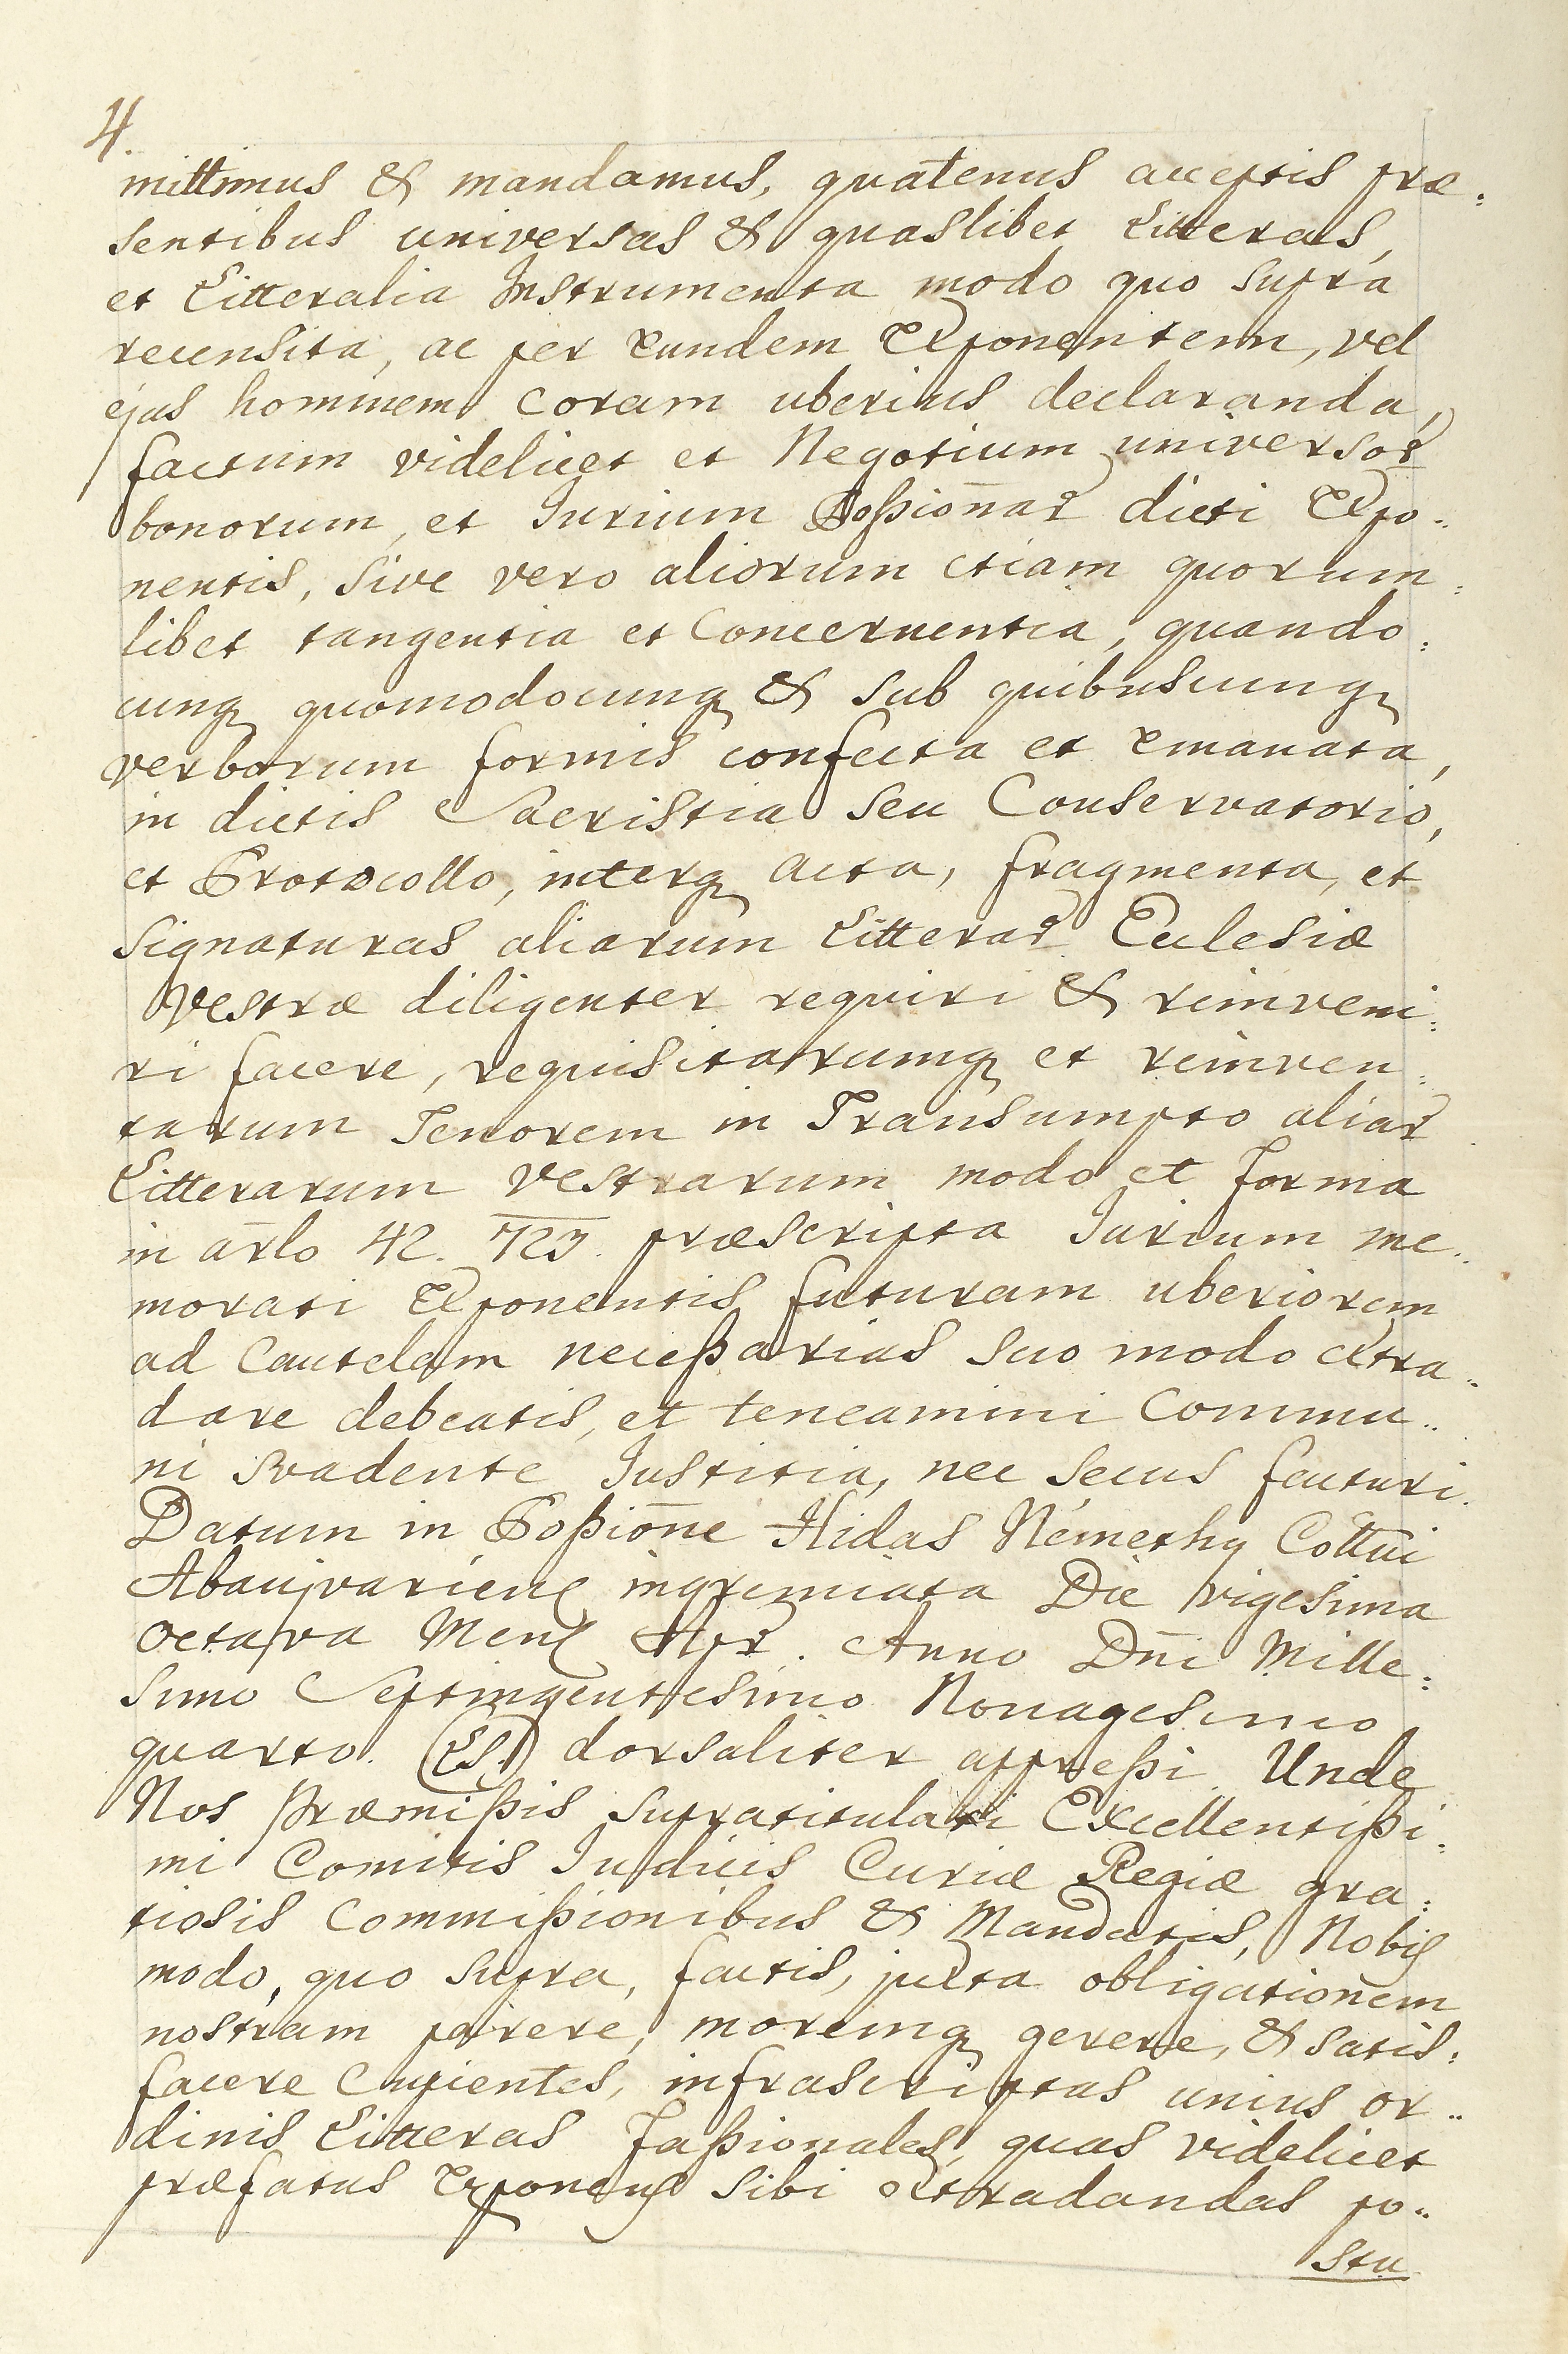 4.
mittimus & mandamus, quatenus acceptis præ:
sentibus universas & quaslibet Litteras,
et Litteralia Instrumenta modo quo supra
recensita, ac per Eundem Exponentem, vel
ejus hominem coram uberius declaranda,
factum videlicet et Negotium universor
bonorum, et Jurium Poßionar dicti Expo..
nentis, sive vero aliorum etiam quorum:
libet tangentia et Concernentia, quando:
cunq quomodocunq & sub quibuscunq
verborum formis confecta et Emanata,
in dictis Sacristia seu Conservatorio,
et Protocollo, interq acta, fragmenta, et
signaturas aliarum Litterar Ecclesiæ
Vestræ diligenter requiri & reinveni:
ri facere, requisitarumq et reinven:
tarum Tenorem in Transumpto aliar
Litterarum Vestrarum modo et forma
in arlo 42. 723. præscripta Jurium me..
morati Exponentis futuram uberiorem
ad Cautelam neceßarias suo modo extra..
dare debeatis, et teneamini Commu..
ni svadente Justitia, nec secus facturi.
Datum in Poßione Hidas Némethy Cottui
Abaujvariens ingremiata Die vigesima
octava Mens Apr. Anno Dni Mille:
simo Septingentesimo Nonagesimo
quarto. (LS.) dorsaliter appreßi. Unde
Nos Præmißis supratitulati Excellentißi:
mi Comitis Judicis Curiæ Regiæ gra:
tiosis Commißionibus & Mandatis, Nobis
modo, quo supra, factis, juxta obligationem
nostram parere, moremq gerere, & satis:
facere Cupientes, infrascriptas unius or..
dinis Litteras Faßionales, quas videlicet
præfatus Exponens sibi extradandas po..
stu